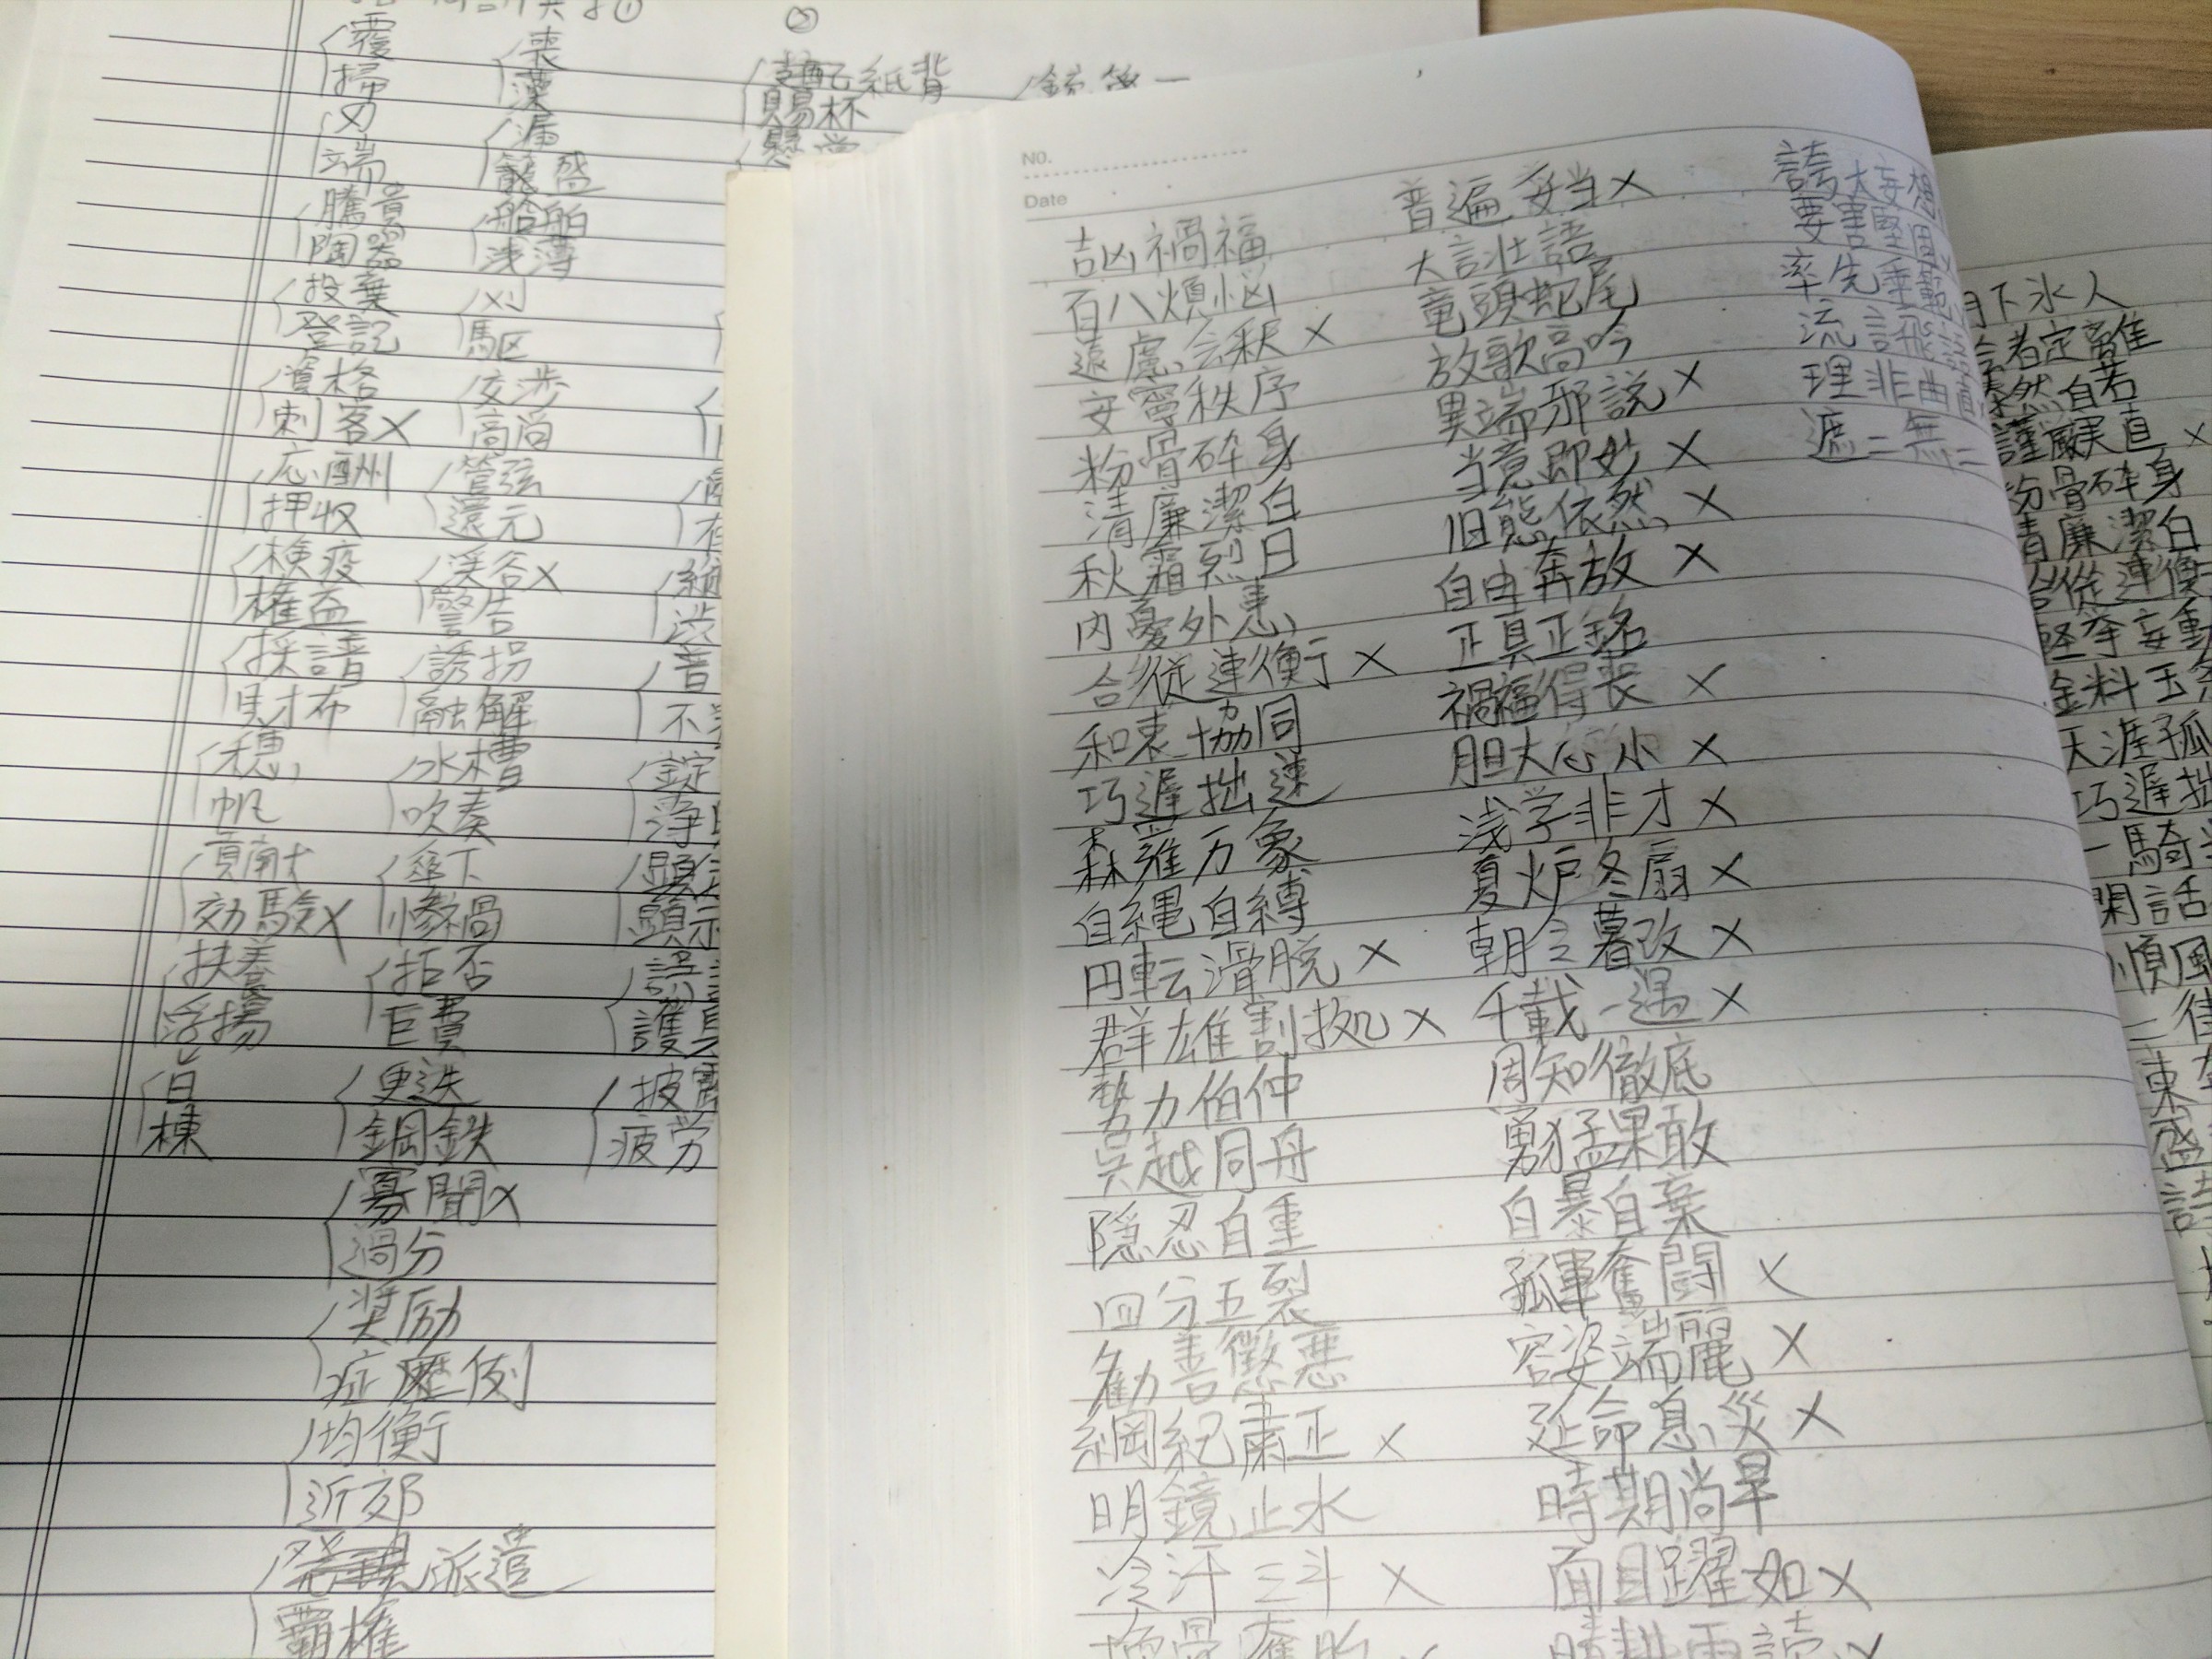 覆
掃
刃
端
騰貴
陶器
投棄
登記
資格
刺客×
応酬
押収
検疫
権益
採譜
財布
穂
帆
貢献
効験×
扶養
浮揚
白
棟
喪
藻
漏
籠 盛
船舶
浅薄
刈
馬区
交渉
高尚
管弦
還元
渓谷×
警告
誘拐
融解
水槽
吹奏
傘下
惨禍
拒否
巨費
更迭
鋼鉄
寡聞×
過分
奨励
症例
均衡
近郊
派遣
覇権
②
紙背
賜杯
疲労
No.
Date
吉凶禍福
百八煩悩
遠慮会釈×
安寧秩序
粉骨砕身
清廉潔白
秋霜烈日
内憂外患
合従連衡×
和衷協同
巧遅拙速
森羅万象
自縄自縛
円転滑脱×
群雄割拠×
勢力伯仲
呉越同舟
隠忍自重
四分五裂
勧善懲悪
綱紀粛正×
明鏡止水
冷汗三斗×
普遍妥当×
大言壮語
竜頭蛇尾
放歌高吟
異端邪説×
当意即妙×
旧態依然×
自由奔放×
正真正銘
禍福得喪×
胆大心小×
浅学非才×
夏炉冬扇×
朝令暮改×
千載一遇×
周知徹底
勇猛果敢
自暴自棄
孤軍奮闘×
容姿端麗×
延命息災×
時期尚早
面目躍如×
晴耕雨読×
誇大妄想
要害堅固×
率先垂範
流言飛語
理非曲直
遮二無二
月下氷人
会者定離
泰然自若
謹厳実直×
粉骨砕身
清廉潔白
合従連衡
軽挙妄動
金科玉条
天涯孤
巧遅拙
一騎当
閑話
順風